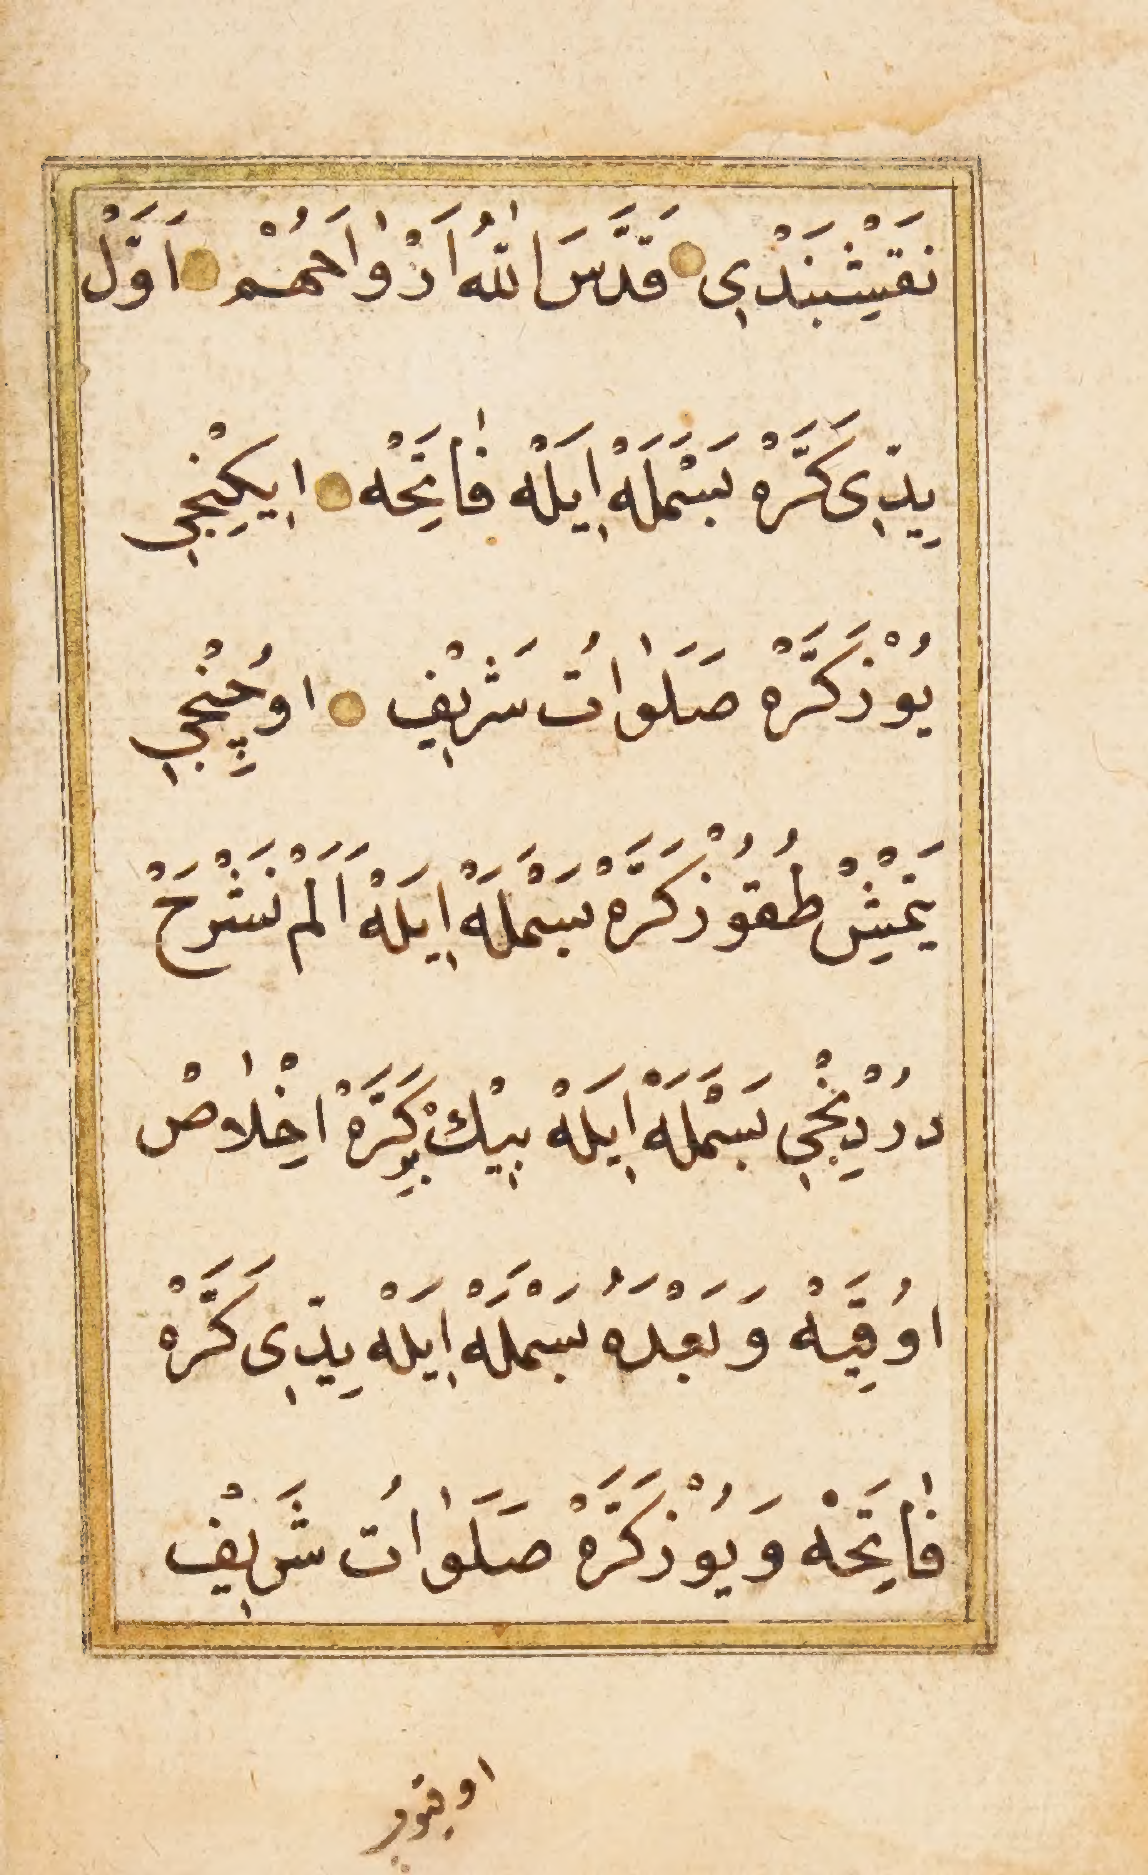 نَقْشِبَنْدِي قَدَّسَ اللّٰهُ اَرْوٰاحَهُمْ اَوَّلْ
يِدِّى كَرَّهْ بَسْمَلَهْ اِيلَهْ فٰاتِحَهْ اِيكِنْجِي
يُوْزْ كَرَّهْ صَلَوٰاتُ شَرِيْفِ اوُچِنْجِي
يَتْمِشْ طُقُوزْ كَرَّهْ بَسْمَلَهْ اِيلَهْ اَلَمْ نَشْرَحْ
دُرْدِنْجِي بَسْمَلَهْ اِيلَهْ بِيْكْ بِرْ كَرَّهْ اِخْلٰاصْ
اوُقِيَهْ وَ بَعْدَهُ بَسْمَلَهْ اِيلَهْ يِدِّى كَرَّهْ
فٰاتِحَهْ وَ يُوْزْ كَرَّهْ صَلَوٰاتُ شَرِيْفِ